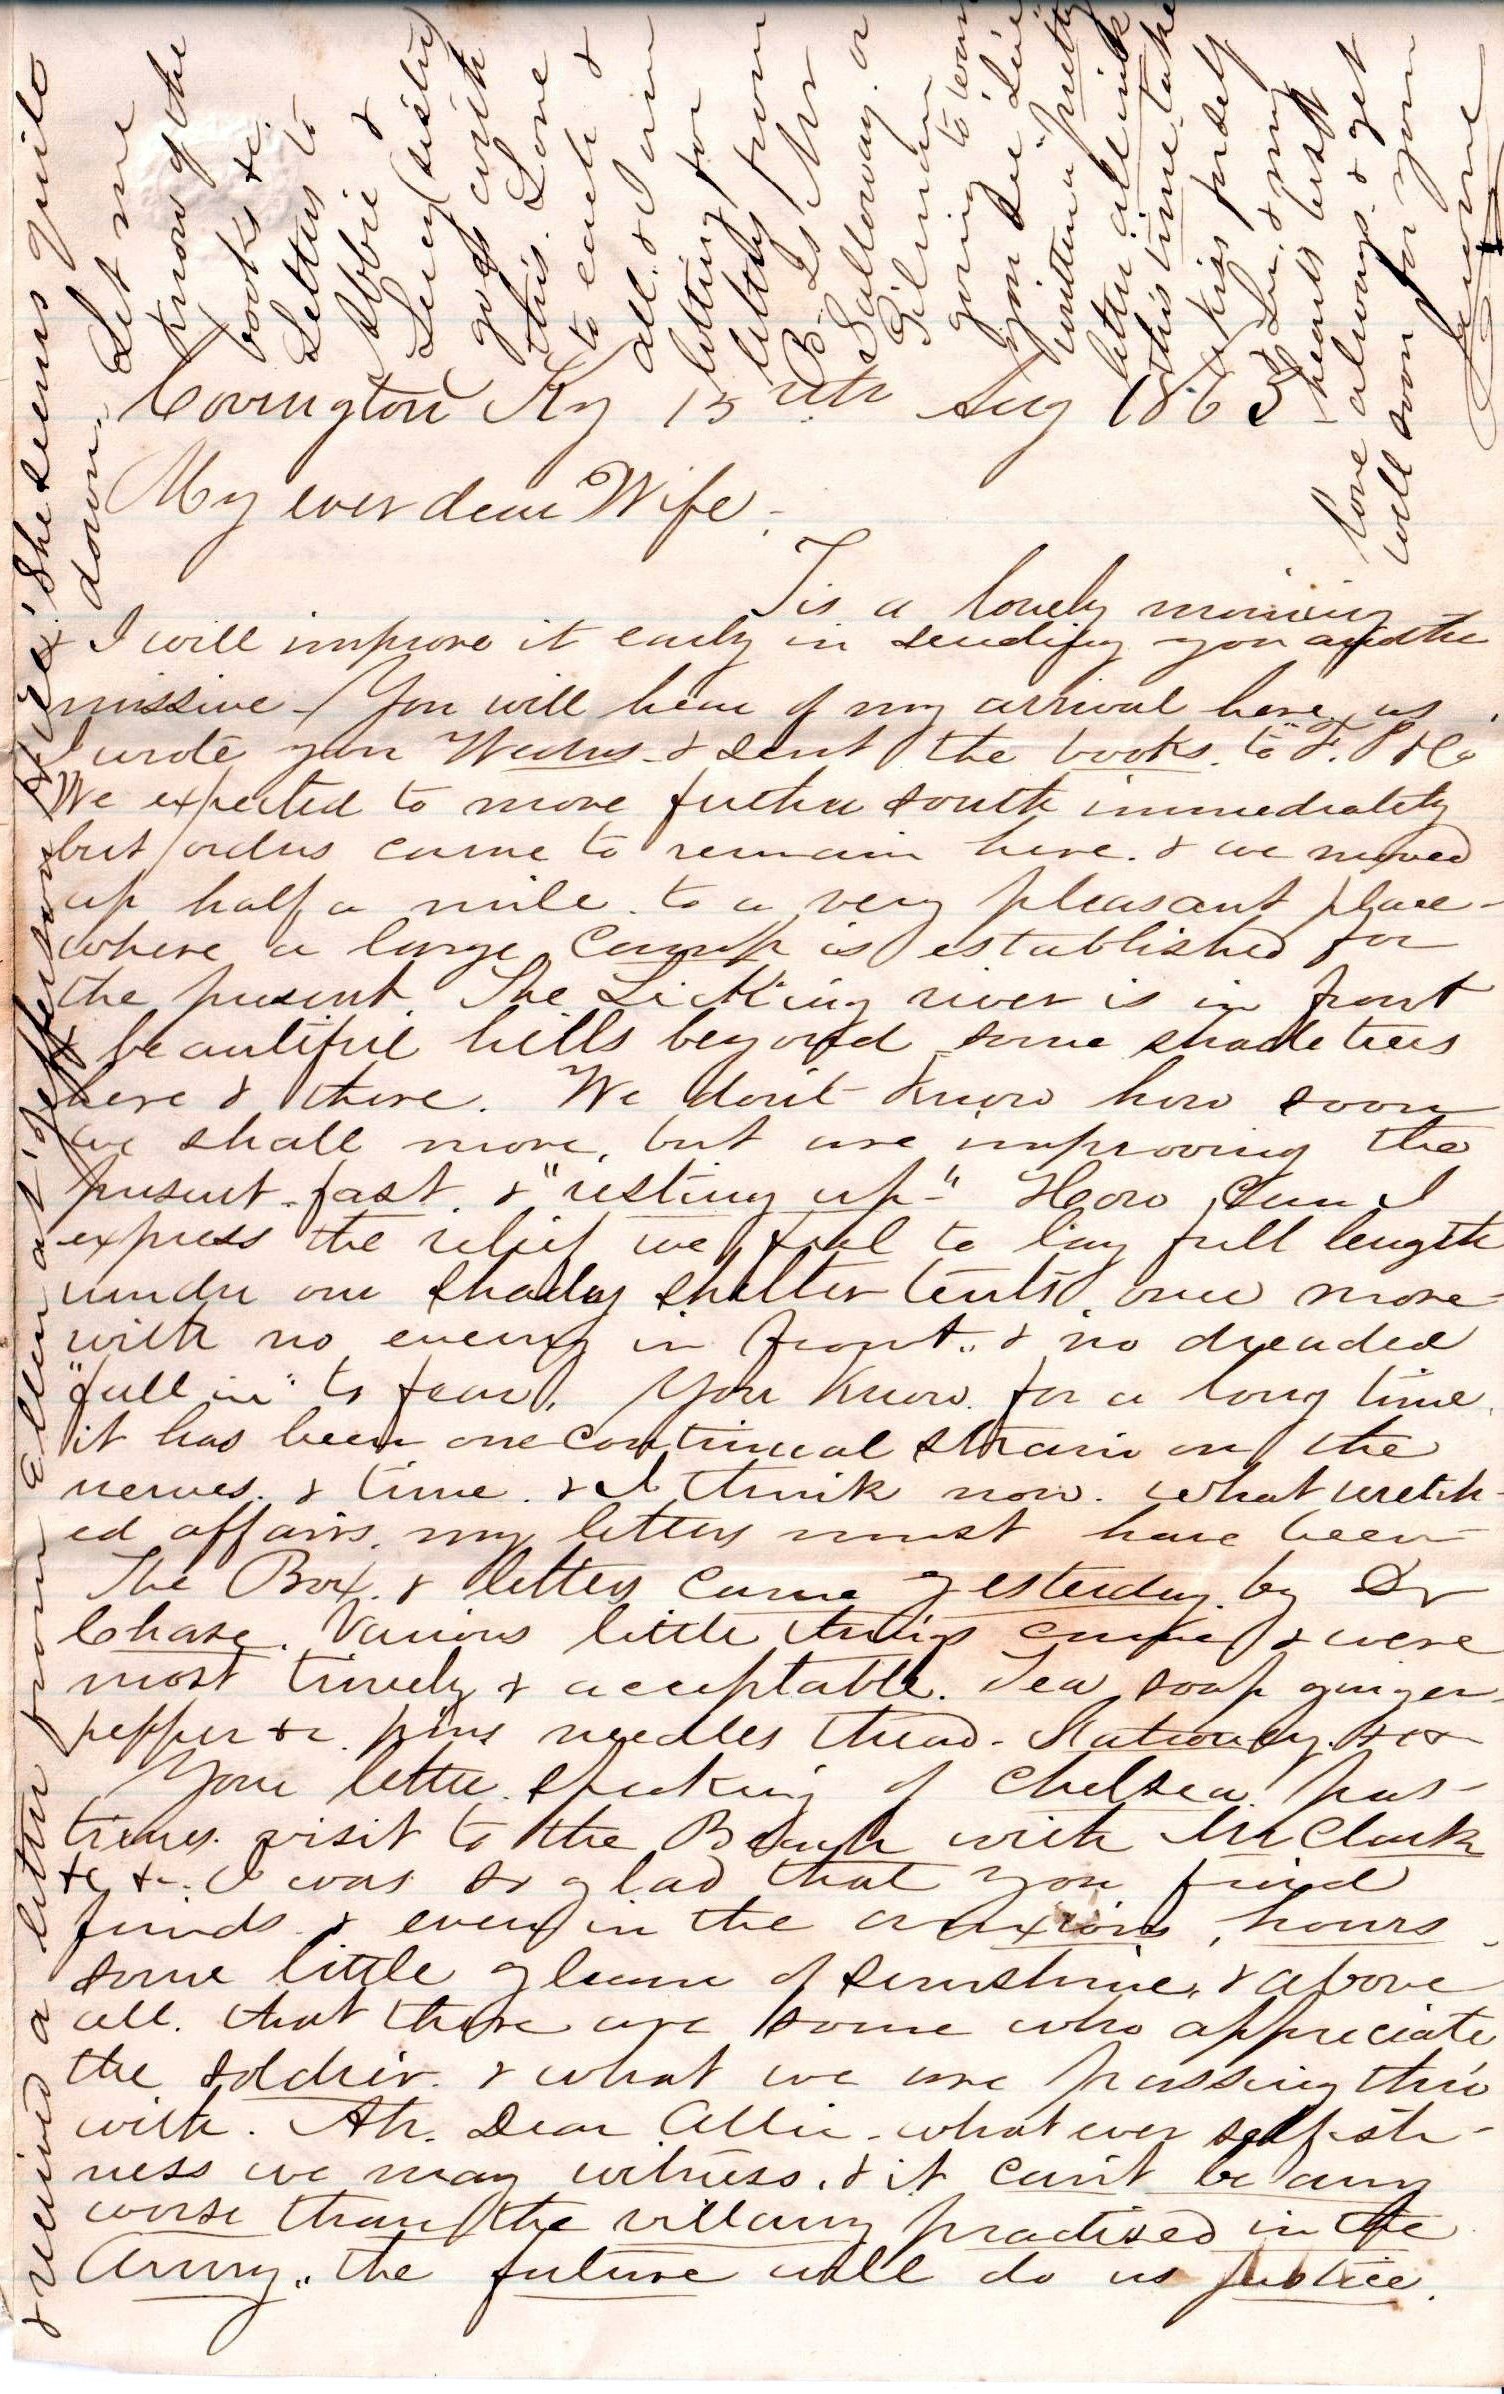 Covington Ky 15th Aug 1863
My ever dear Wife.
Tis a lovely morning
& I will improve it early in sending you another
missive - You will hear of my arrival here as
I wrote you Wedns. & sent the books. to "F. P & Co
We expected to move futher south immediately
but orders came to remain here. & we moved
up half a mile. to a very pleasant place -
where a large Camp is established for
the present. The Licking river is in front
& beautiful hills beyond some shade trees
here & there. We don't know how soon
we shall move, but are improving the
present fast. & "resting up" How Can I
express the relief we feel to lay full length
under our shady shelter tents. once more -
with no enemy in front., & no dreaded
"fall in" to fear. You know. for a long time.
it has been one continual strain on the
nerves. & time. & I think now. what wretch-
ed affairs. my letters must have been -
The Box. & letters came yesterday. by Dr
Chase. Various little things came & were
most timely & acceptable. Tea soap ginger
pepper &c. pins needles thread. Stationery. &c&
Your letter. speaking of Chelsea. pas-
times. visit to the Beach with Mr Clark
&c &c. I was so glad that you find
friends. & even in the anxious, hours.
some little gleam of sunshine, & above
all. that there are some who appreciate
the soldier. & what we are passing thro
with. Ah. Dear Allie. what ever selfish-
ness we may witness. & it can't be any
worse than the villainy practised in the
Army., the future will do us justice.
& received a letter from Ellen at 'Jefferson Hill'. She seems quite
down. Let me
know of the
books &c.
Letters to
Abbie &
Lucy (sister)
goes with
this. Love
to each &
all. & I am
hoping for
letters from
B. Is Mr
Salloway. or
Gilman
going to
you See Lue
written a pretty
letter all ink
this time. take
a kiss for self
& Lue. & my
hearts best
love always. & yet
will soon for your